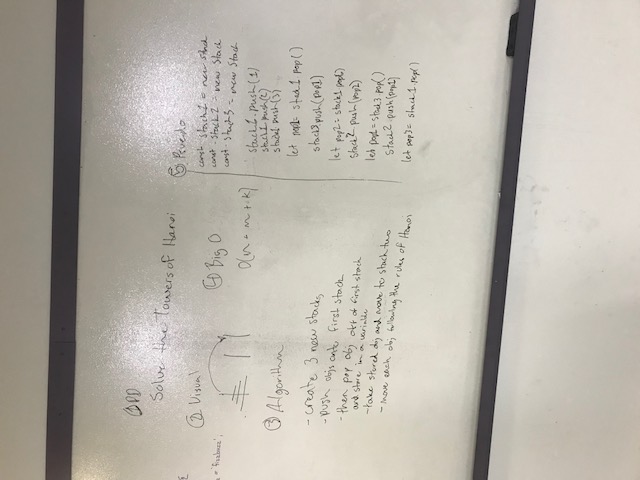 ① PD
Solve the Towers of Hanoi
② Visual
③ Algorithm
- create 3 new stacks
- push objs onto first stack
- then pop obj off of first stack
and store in a variable
- take stored obj and move to stack two
- move each obj following the rules of Hanoi
④ Big O
O(n + m + k)
⑤ Psuedo
const stack1 = new Stack
const stack2 = new Stack
const stack3 = new Stack
stack1.push(1)
stack1.push(2)
stack1.push(3)
let pop1 = stack1 pop()
stack3.push(pop1)
let pop2 = stack1.pop()
stack2.push(pop2)
let pop1 = stack3.pop()
stack2.push(pop1)
let pop3 = stack1.pop()